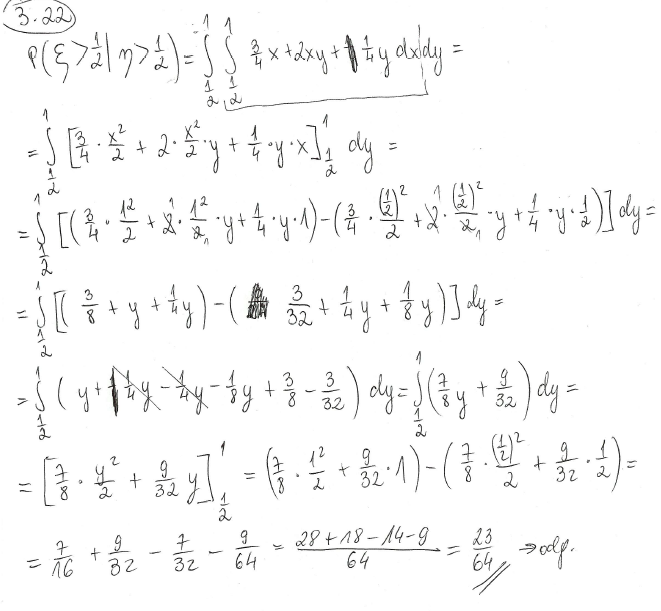 3.22
P(ξ > 1/2 | η > 1/2) = ∫_{1/2}^{1} ∫_{1/2}^{1} 3/4 x + 2xy + 1/4 y dx dy =
= ∫_{1/2}^{1} [3/4 · x²/2 + 2 · x²/2 · y + 1/4 · y · x]_{1/2}^{1} dy =
= ∫_{1/2}^{1} [(3/4 · 1²/2 + 2 · 1²/2 · y + 1/4 · y · 1) − (3/4 · (1/2)²/2 + 2 · (1/2)²/2 · y + 1/4 · y · 1/2)] dy =
= ∫_{1/2}^{1} [(3/8 + y + 1/4 y) − (3/32 + 1/4 y + 1/8 y)] dy =
= ∫_{1/2}^{1} (y + 1/4 y − 1/4 y − 1/8 y + 3/8 − 3/32) dy = ∫_{1/2}^{1} (7/8 y + 9/32) dy =
= [7/8 · y²/2 + 9/32 y]_{1/2}^{1} = (7/8 · 1²/2 + 9/32 · 1) − (7/8 · (1/2)²/2 + 9/32 · 1/2) =
= 7/16 + 9/32 − 7/32 − 9/64 = (28 + 18 − 14 − 9)/64 = 23/64 → odp.